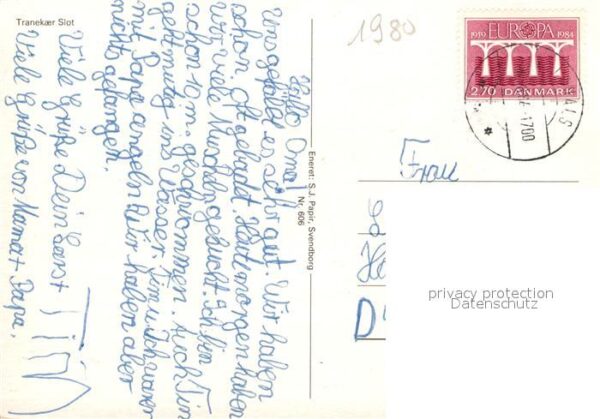 Tranekær Slot
1980
EUROPA
1959 1984
2.70 DANMARK
17 00
Hallo Oma!
Uns gefällt es sehr gut. Wir haben
schon oft gebadet. Heute morgen haben
wir viele Muscheln gesucht. Ich bin
schon 10 m geschwommen. Auch Tim
geht mutig ins Wasser. Tim u. Ich waren
mit Papa angeln. Wir haben aber
nichts gefangen.
Viele Grüße Dein Carst
TIM
Viele Grüße von Mama + Papa.
Eneret: S.J. Papir, Svendborg
Nr. 606
Frau
D
privacy protection
Datenschutz